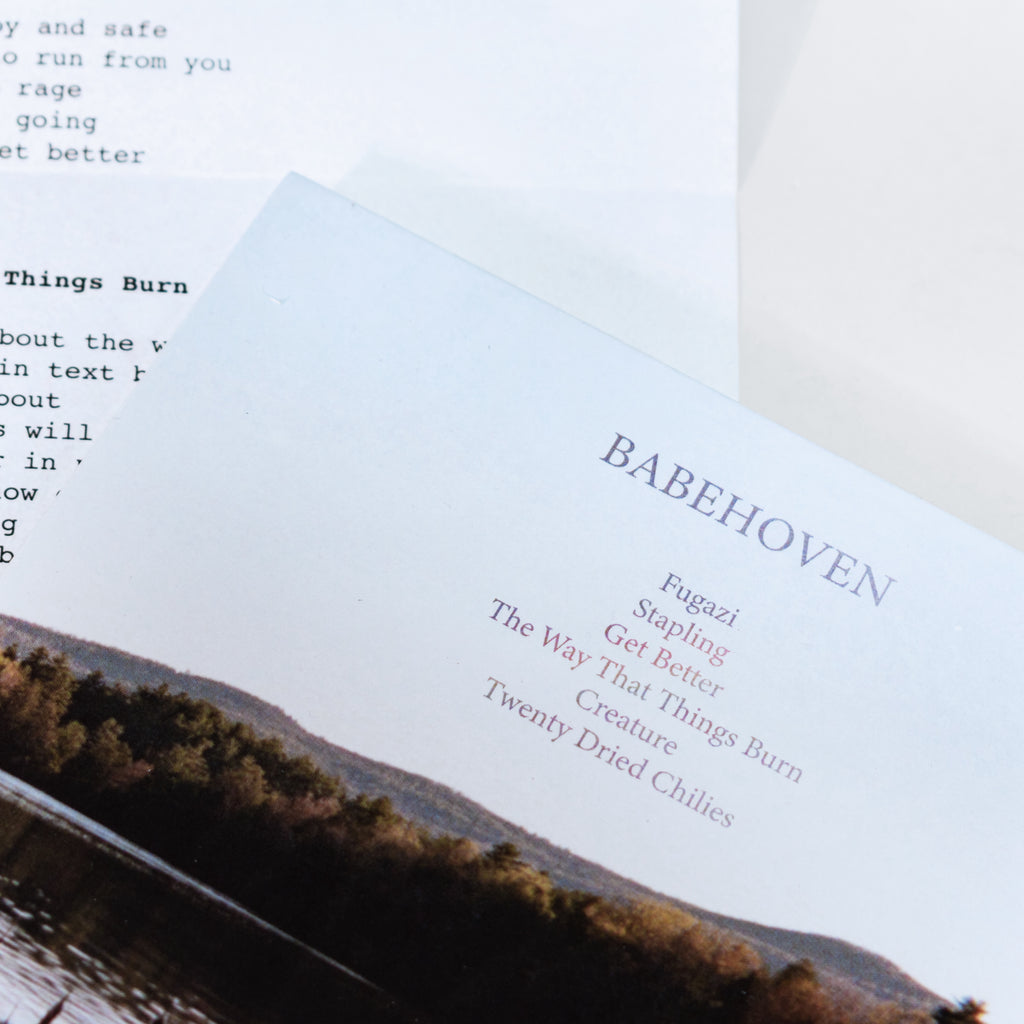 and safe
run from you
rage
going
better
Things Burn
the
in text
will
in
BABEHOVEN
Fugazi
Stapling
Get Better
The Way That Things Burn
Creature
Twenty Dried Chilies